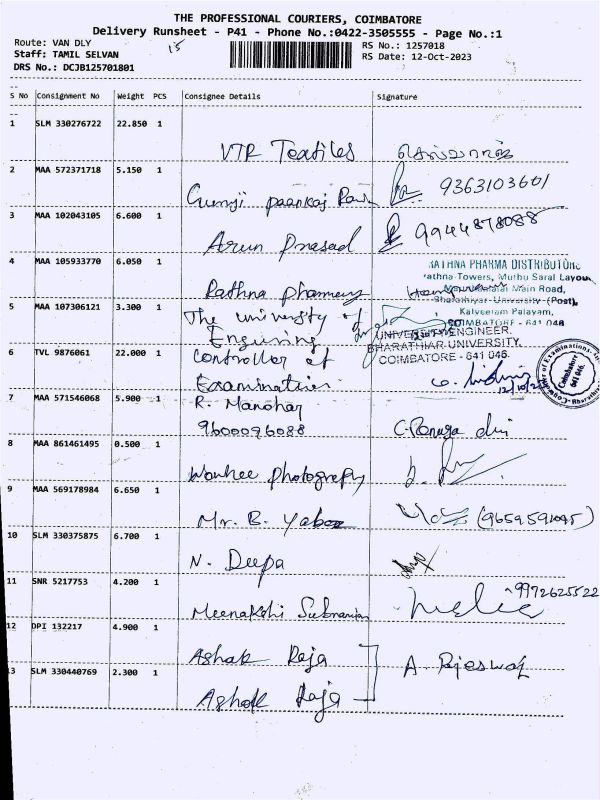 THE PROFESSIONAL COURIERS, COIMBATORE
Delivery Runsheet - P41 - Phone No.:0422-3505555 - Page No.:1
Route: VAN DLY
15
RS No.: 1257018
Staff: TAMIL SELVAN
RS Date: 12-Oct-2023
DRS No.: DCJB125701801
S No Consignment No Weight PCS Consignee Details Signature
1 SLM 330276722 22.850 1
VTR Textiles
2 MAA 572371718 5.150 1
9363103601
3 MAA 102043105 6.600 1
Arun Prasad 9944878088
4 MAA 105933770 6.050 1
RATHNA PHARMA DISTRIBUTORS
Rathna Towers, Muthu Saral Layout
Main Road,
Bharathiyar University (Post),
Kalveeram Palayam,
COIMBATORE - 641 046
Rathna pharmacy
5 MAA 107306121 3.300 1
The university of
UNIVERSITY ENGINEER.
BHARATHIAR UNIVERSITY,
COIMBATORE - 641 046.
6 TVL 9876061 22.000 1
Controller of
Examination
12/10/23
Coimbatore
641 046.
7 MAA 571546068 5.900 1
R. Manohar
9600096088
8 MAA 861461495 0.500 1
photography
9 MAA 569178984 6.650 1
Mr. B.
10 SLM 330375875 6.700 1
N. Deepa
11 SNR 5217753 4.200 1
9972625522
Meenakshi
12 DPI 132217 4.900 1
Ashok Raja
13 SLM 330440769 2.300 1
Ashok Raja